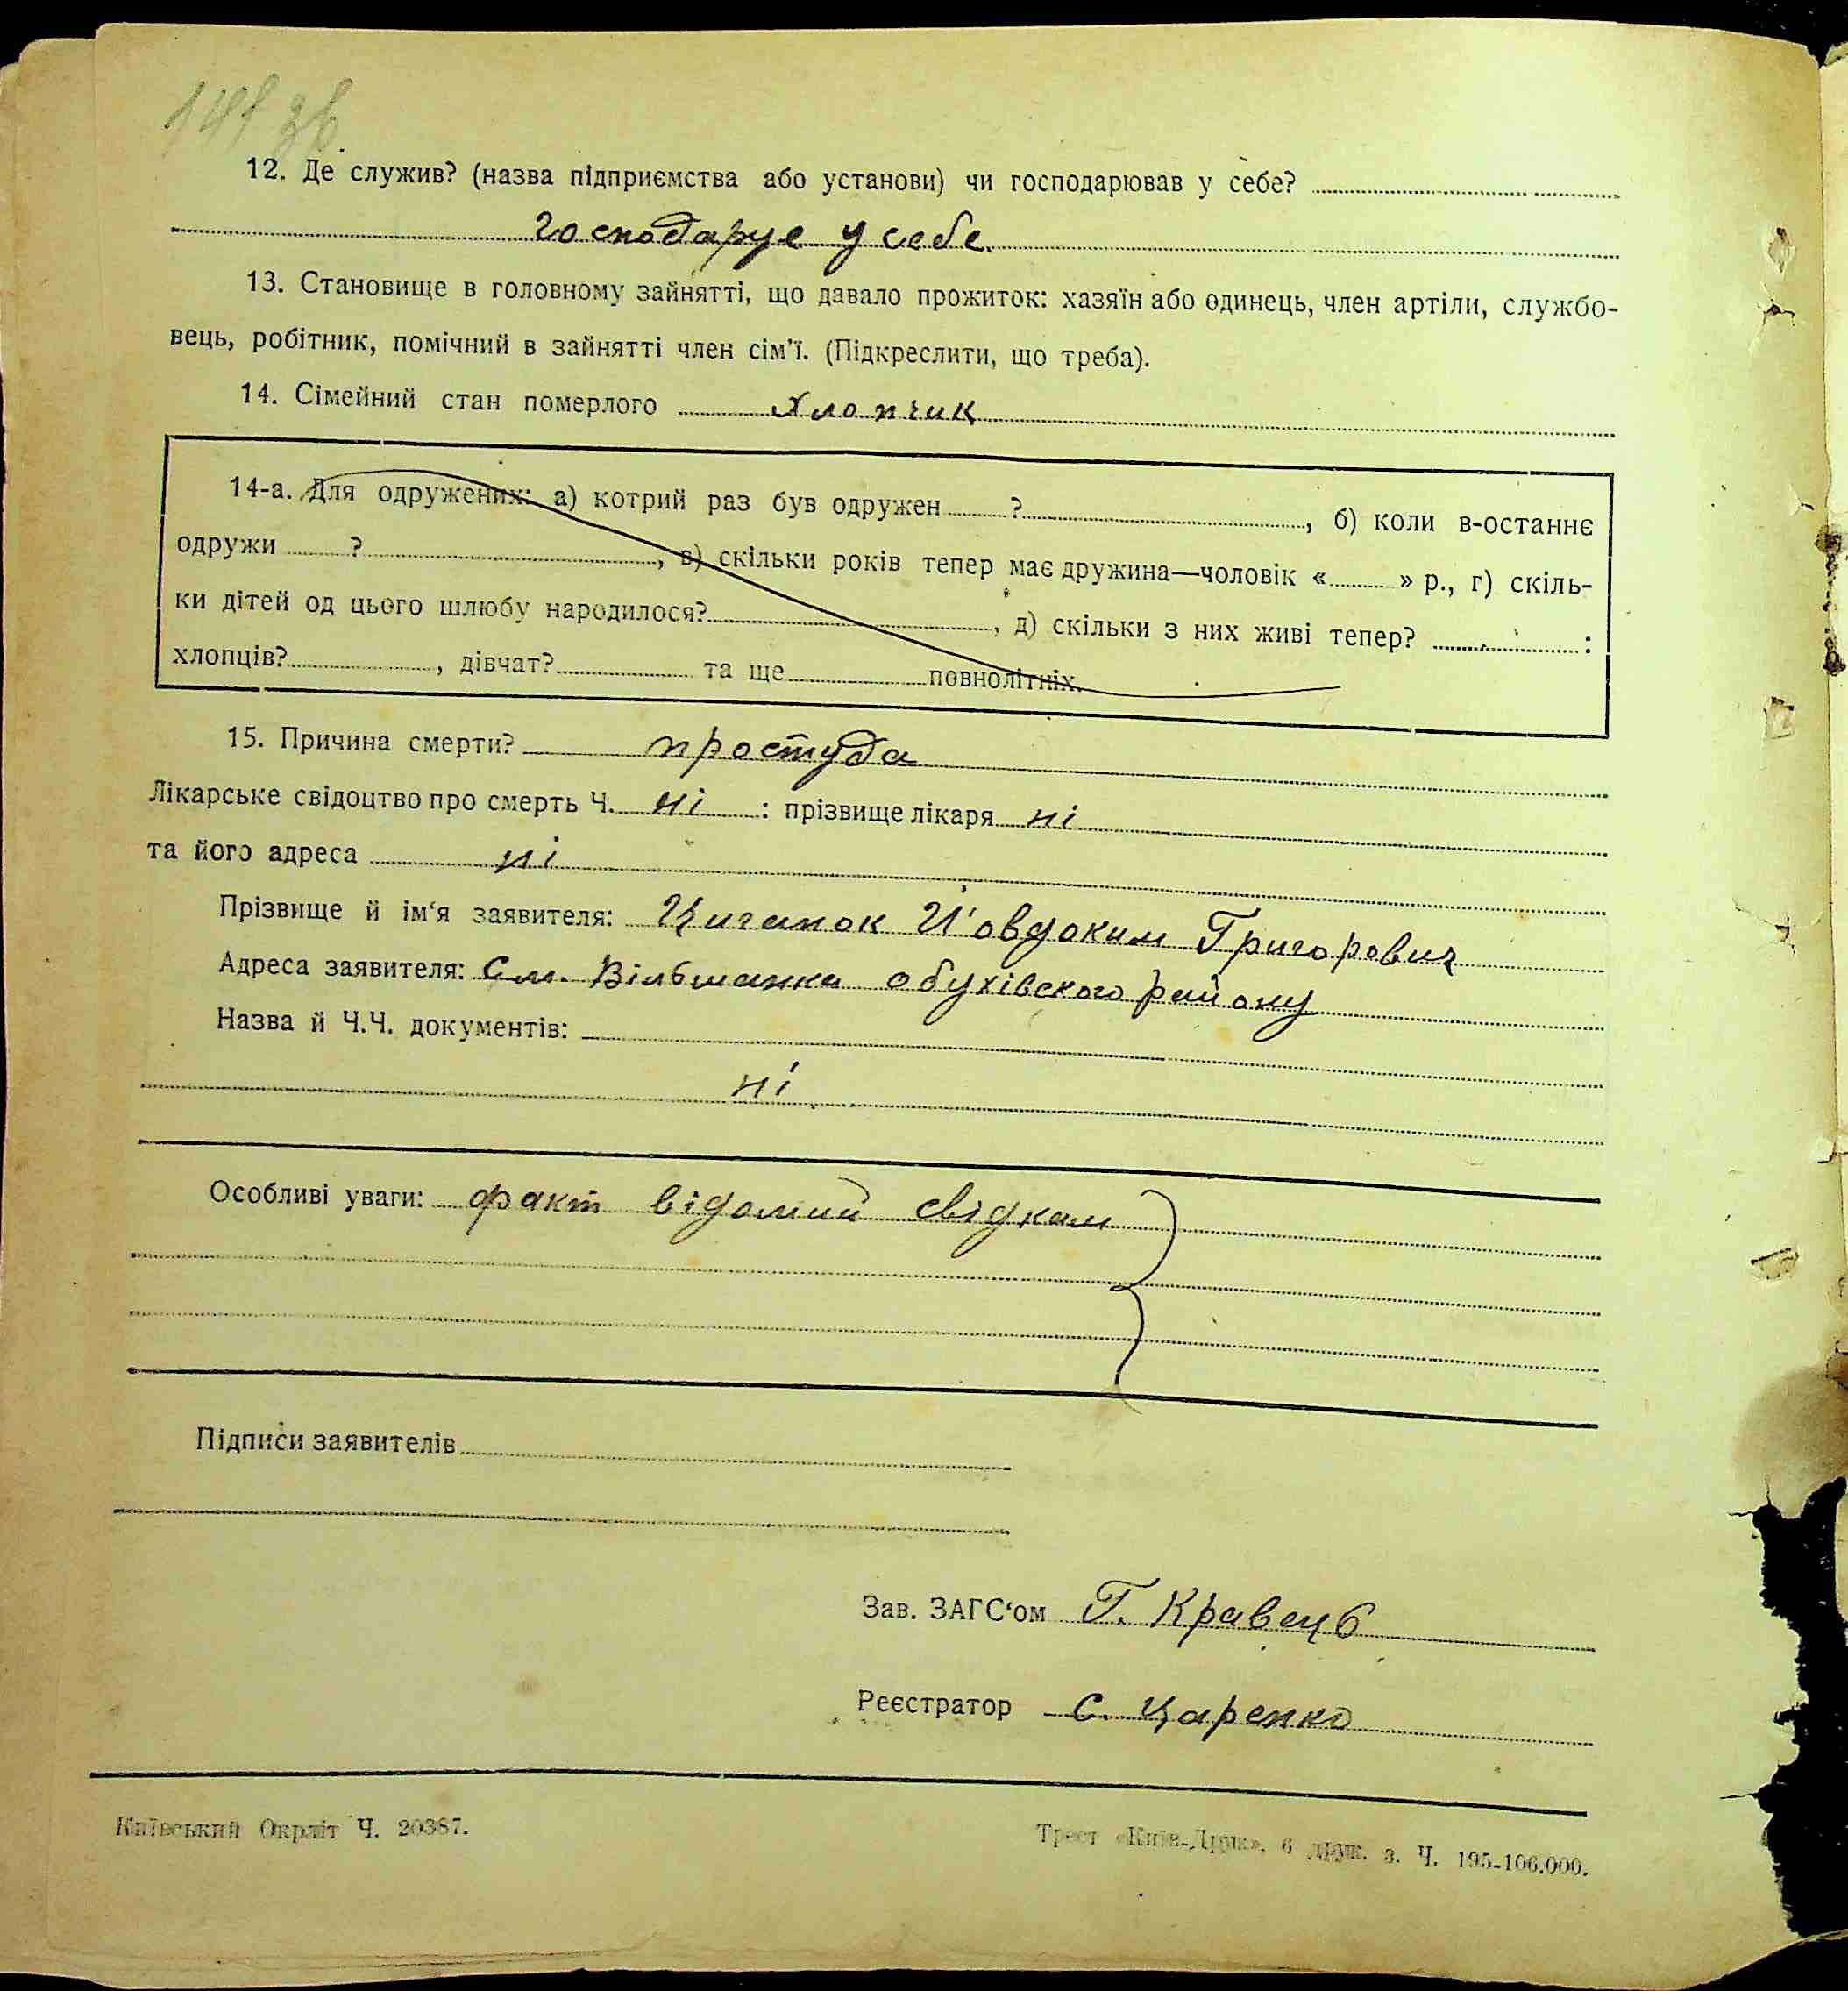 141 зв
12. Де служив? (назва підприємства або установи) чи господарював у себе?
господарує у себе.
13. Становище в головному зайнятті, що давало прожиток: хазяїн або одинець, член артіли, службо-
вець, робітник, помічний в зайнятті член сім'ї. (Підкреслити, що треба).
14. Сімейний стан померлого хлопчик
14-а. Для одружених: а) котрий раз був одружен ? , б) коли в-останнє
одружи ? , в) скільки років тепер має дружина—чоловік « » р., г) скіль-
ки дітей од цього шлюбу народилося? , д) скільки з них живі тепер? :
хлопців? , дівчат? та ще повнолітніх.
15. Причина смерти? простуда
Лікарське свідоцтво про смерть Ч. ні : прізвище лікаря ні
та його адреса ні
Прізвище й ім‘я заявителя: Циганок Й'овдоким Григорович
Адреса заявителя: См. Вільшанка обухівского району
Назва й Ч.Ч. документів:
ні
Особливі уваги: факт відомий свідкам
Підписи заявителів
Зав. ЗАГС‘ом Г. Кравець
Реєстратор С. Царенко
Київський Окрліт Ч. 20387.
Трест «Київ-Друк». 6 друк. з. Ч. 195-106.000.